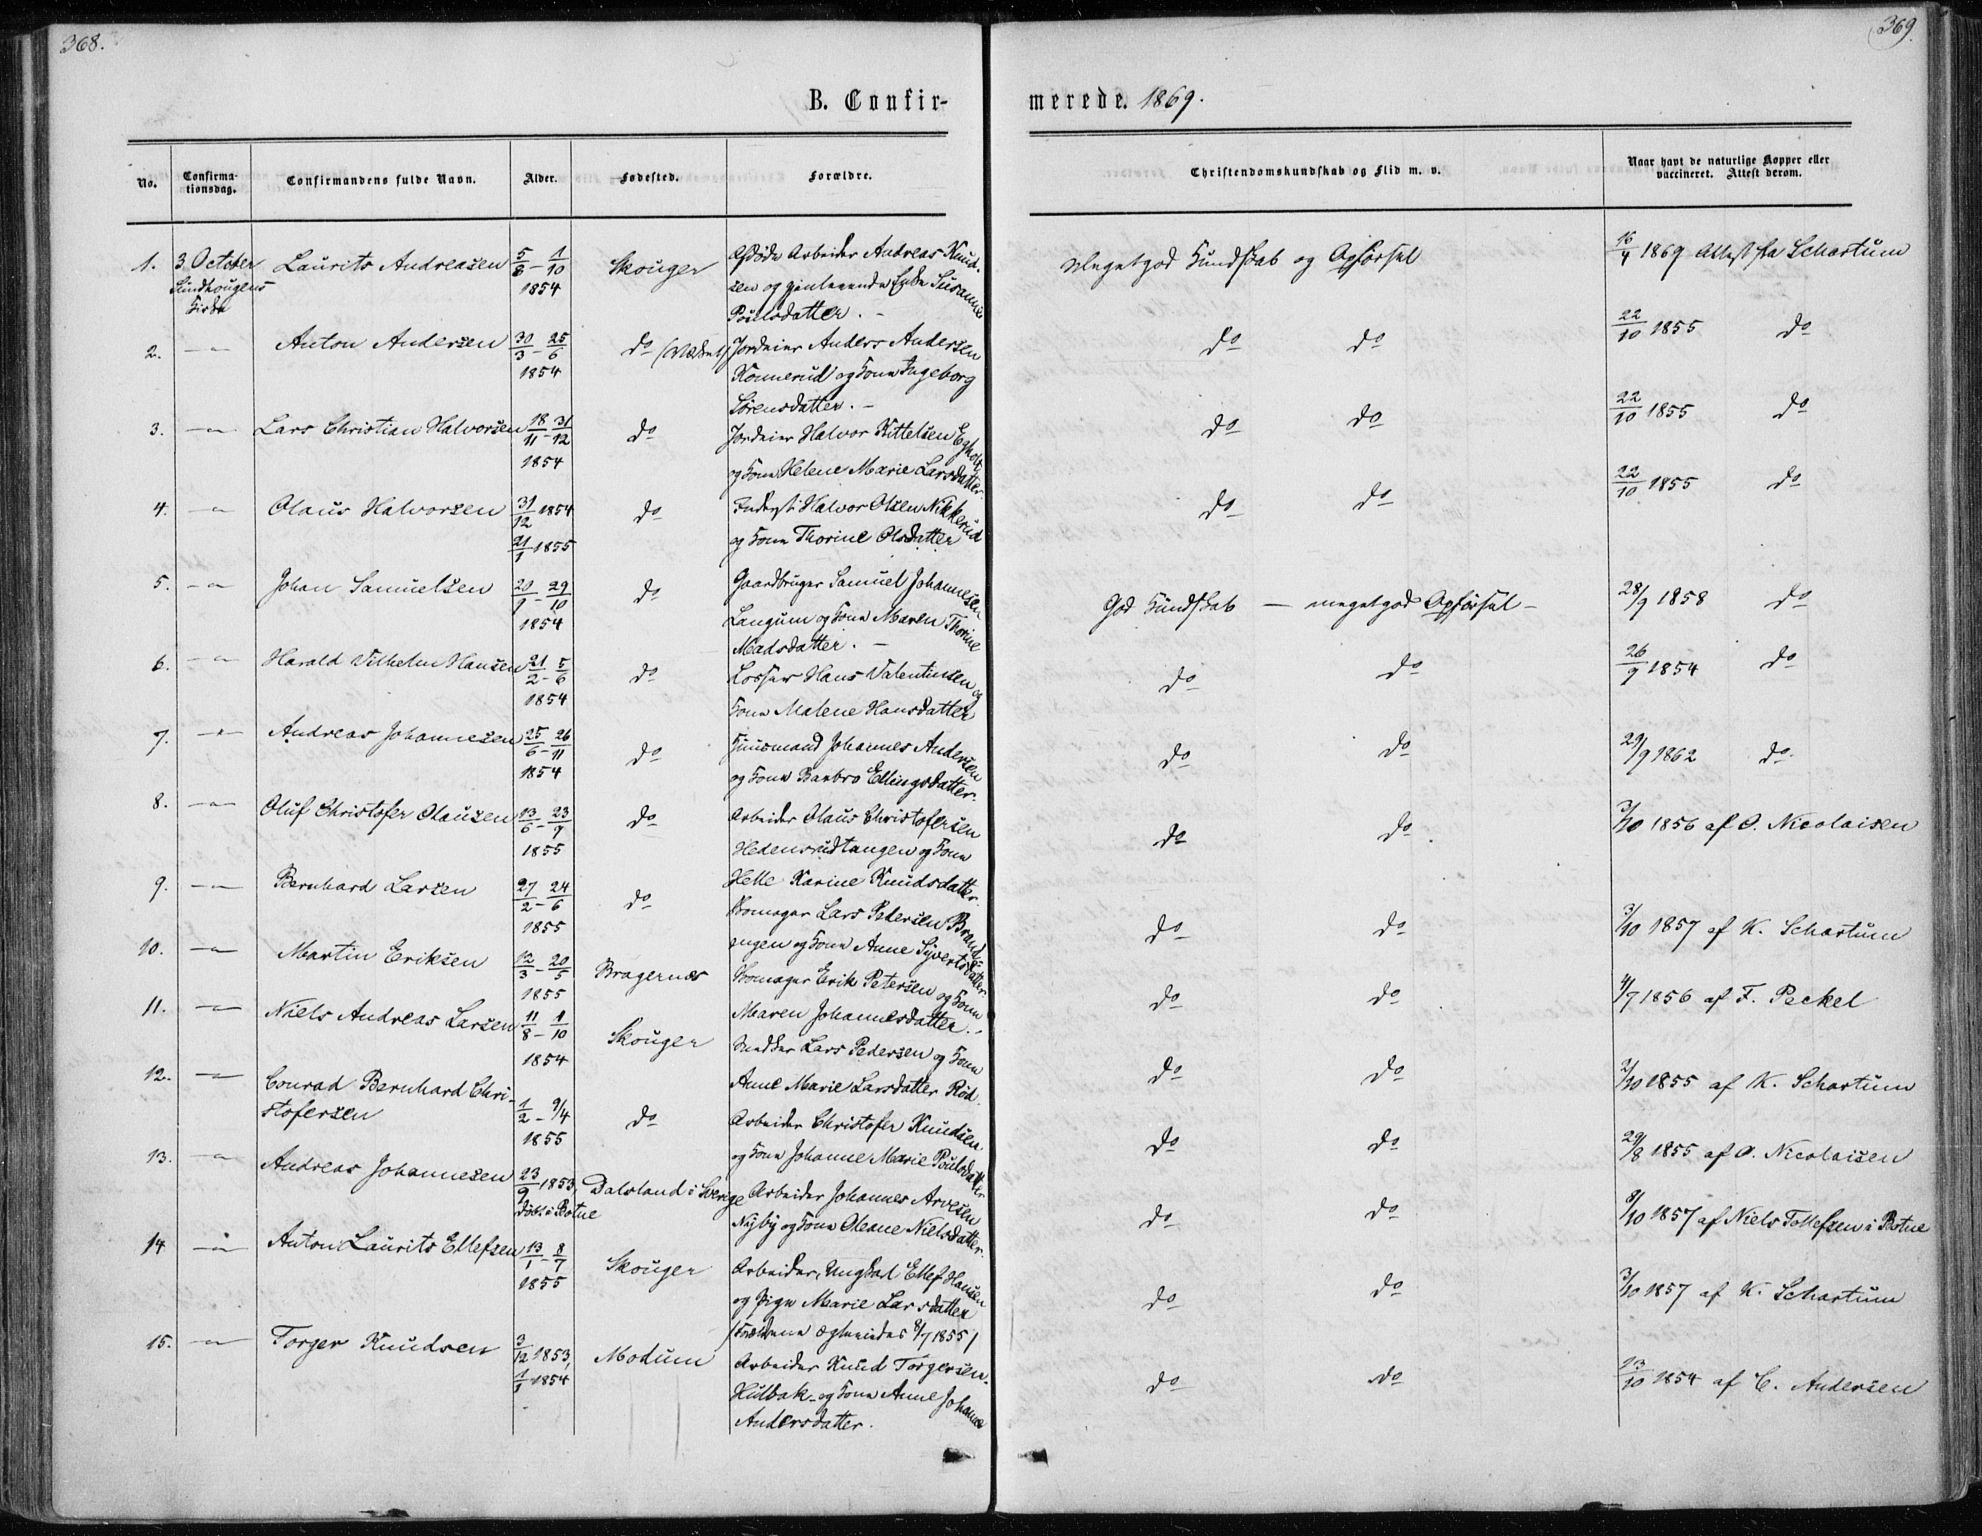 368.
369.
B. Confir-
merede. 1869.
No.
Confirma-
tionsdag.
Confirmandens fulde Navn.
Alder.
Fødested.
Forældre.
Christendomskundskab og Flid m. v.
Naar havt de naturlige Kopper eller
vaccineret. Attest derom.
1. 3 October Laurits Andreasen 5/8 - 1/10 Skouger Afdøde Arbeider Andreas Knud-
Kirke 1854 sen og gjenlevende Enke Susanne
Poulsdatter. -
Megetgod Kundskab og Opførsel 16/4 1869 Attest fra Schartum
2. -"- Anton Andersen 30/3 - 25/6 do Anders Andersen
1854 Konnerud og Kone Ingeborg
Sørensdatter. -
do do 22/10 1855 do
3. -"- Lars Christian Halvorsen 18/11 - 31/12 do Halvor Kittelsen Egholt
1854 og Kone Helene Marie Larsdatter
do do 22/10 1855 do
4. -"- Olaus Halvorsen 31/12 1854 do Inderst Halvor Olsen Nikkerud
21/1 1855 og Kone Thorine Olsdatter
do do 22/10 1855 do
5. -"- Johan Samuelsen 20/9 - 29/10 do Gaardbruger Samuel Johannesen
1854 Langum og Kone Maren Thorine
Madsdatter. -
God Kundskab - megetgod Opførsel - 28/9 1858 do
6. -"- Harald Vilhelm Hansen 21/2 - 5/6 do Losser Hans Valentinsen og
1854 Kone Malene Hansdatter
do do 26/9 1854 do
7. -"- Andreas Johannesen 25/6 - 26/11 do Huusmand Johannes Andersen
1854 og Kone Barbro Ellingsdatter.
do do 29/9 1862 do
8. -"- Oluf Christofer Olausen 13/6 - 23/9 do Arbeider Olaus Christofersen
1855 Hedensrudtangen og Kone
Helle Karine Knudsdatter.
do do 3/10 1856 af O. Nicolaisen
9. -"- Bernhard Larsen 27/2 - 24/6 do Skomager Lars Pedersen Brand-
1855 engen og Kone Anne Syvertsdatter
do do 3/10 1857 af K. Schartum
10. -"- Martin Eriksen 12/3 - 20/5 Bragernæs Skomager Erik Petersen og Kone
1855 Maren Johannesdatter. -
do do 4/7 1856 af F. Peckel
11. -"- Niels Andreas Larsen 11/8 - 1/10 Skouger Lars Pedersen og Kone
1854 Anne Marie Larsdatter Rød.
do do 2/10 1855 af K. Schartum
12. -"- Conrad Bernhard Chri-
stofersen 1/2 - 9/4 do Arbeider Christofer Knudsen
1855 og Kone Johanne Marie Poulsdatter
do do 29/8 1855 af O. Nicolaisen
13. -"- Andreas Johannesen 23/9 1853, Dalsland i Sverige Arbeider Johannes Arvesen
døbt i Botne Nyby og Kone Oleane Nielsdatter.
do do 8/10 1857 af Niels Tollefsen i Botne
14 -"- Anton Laurits Ellefsen 13/1 - 8/7 Skouger Arbeider, Ungkarl Ellef Hansen
1855 og Pige Marie Larsdatter
(Forældrene ægteviedes 8/7 1855)
do do 3/10 1857 af K. Schartum
15. -"- Torger Knudsen 3/12 1853, Modum Arbeider Knud Torgersen
1/1 1854 Hulbak og Kone Anne Johanne
Andersdatter.
do do 13/10 1854 af C. Andersen